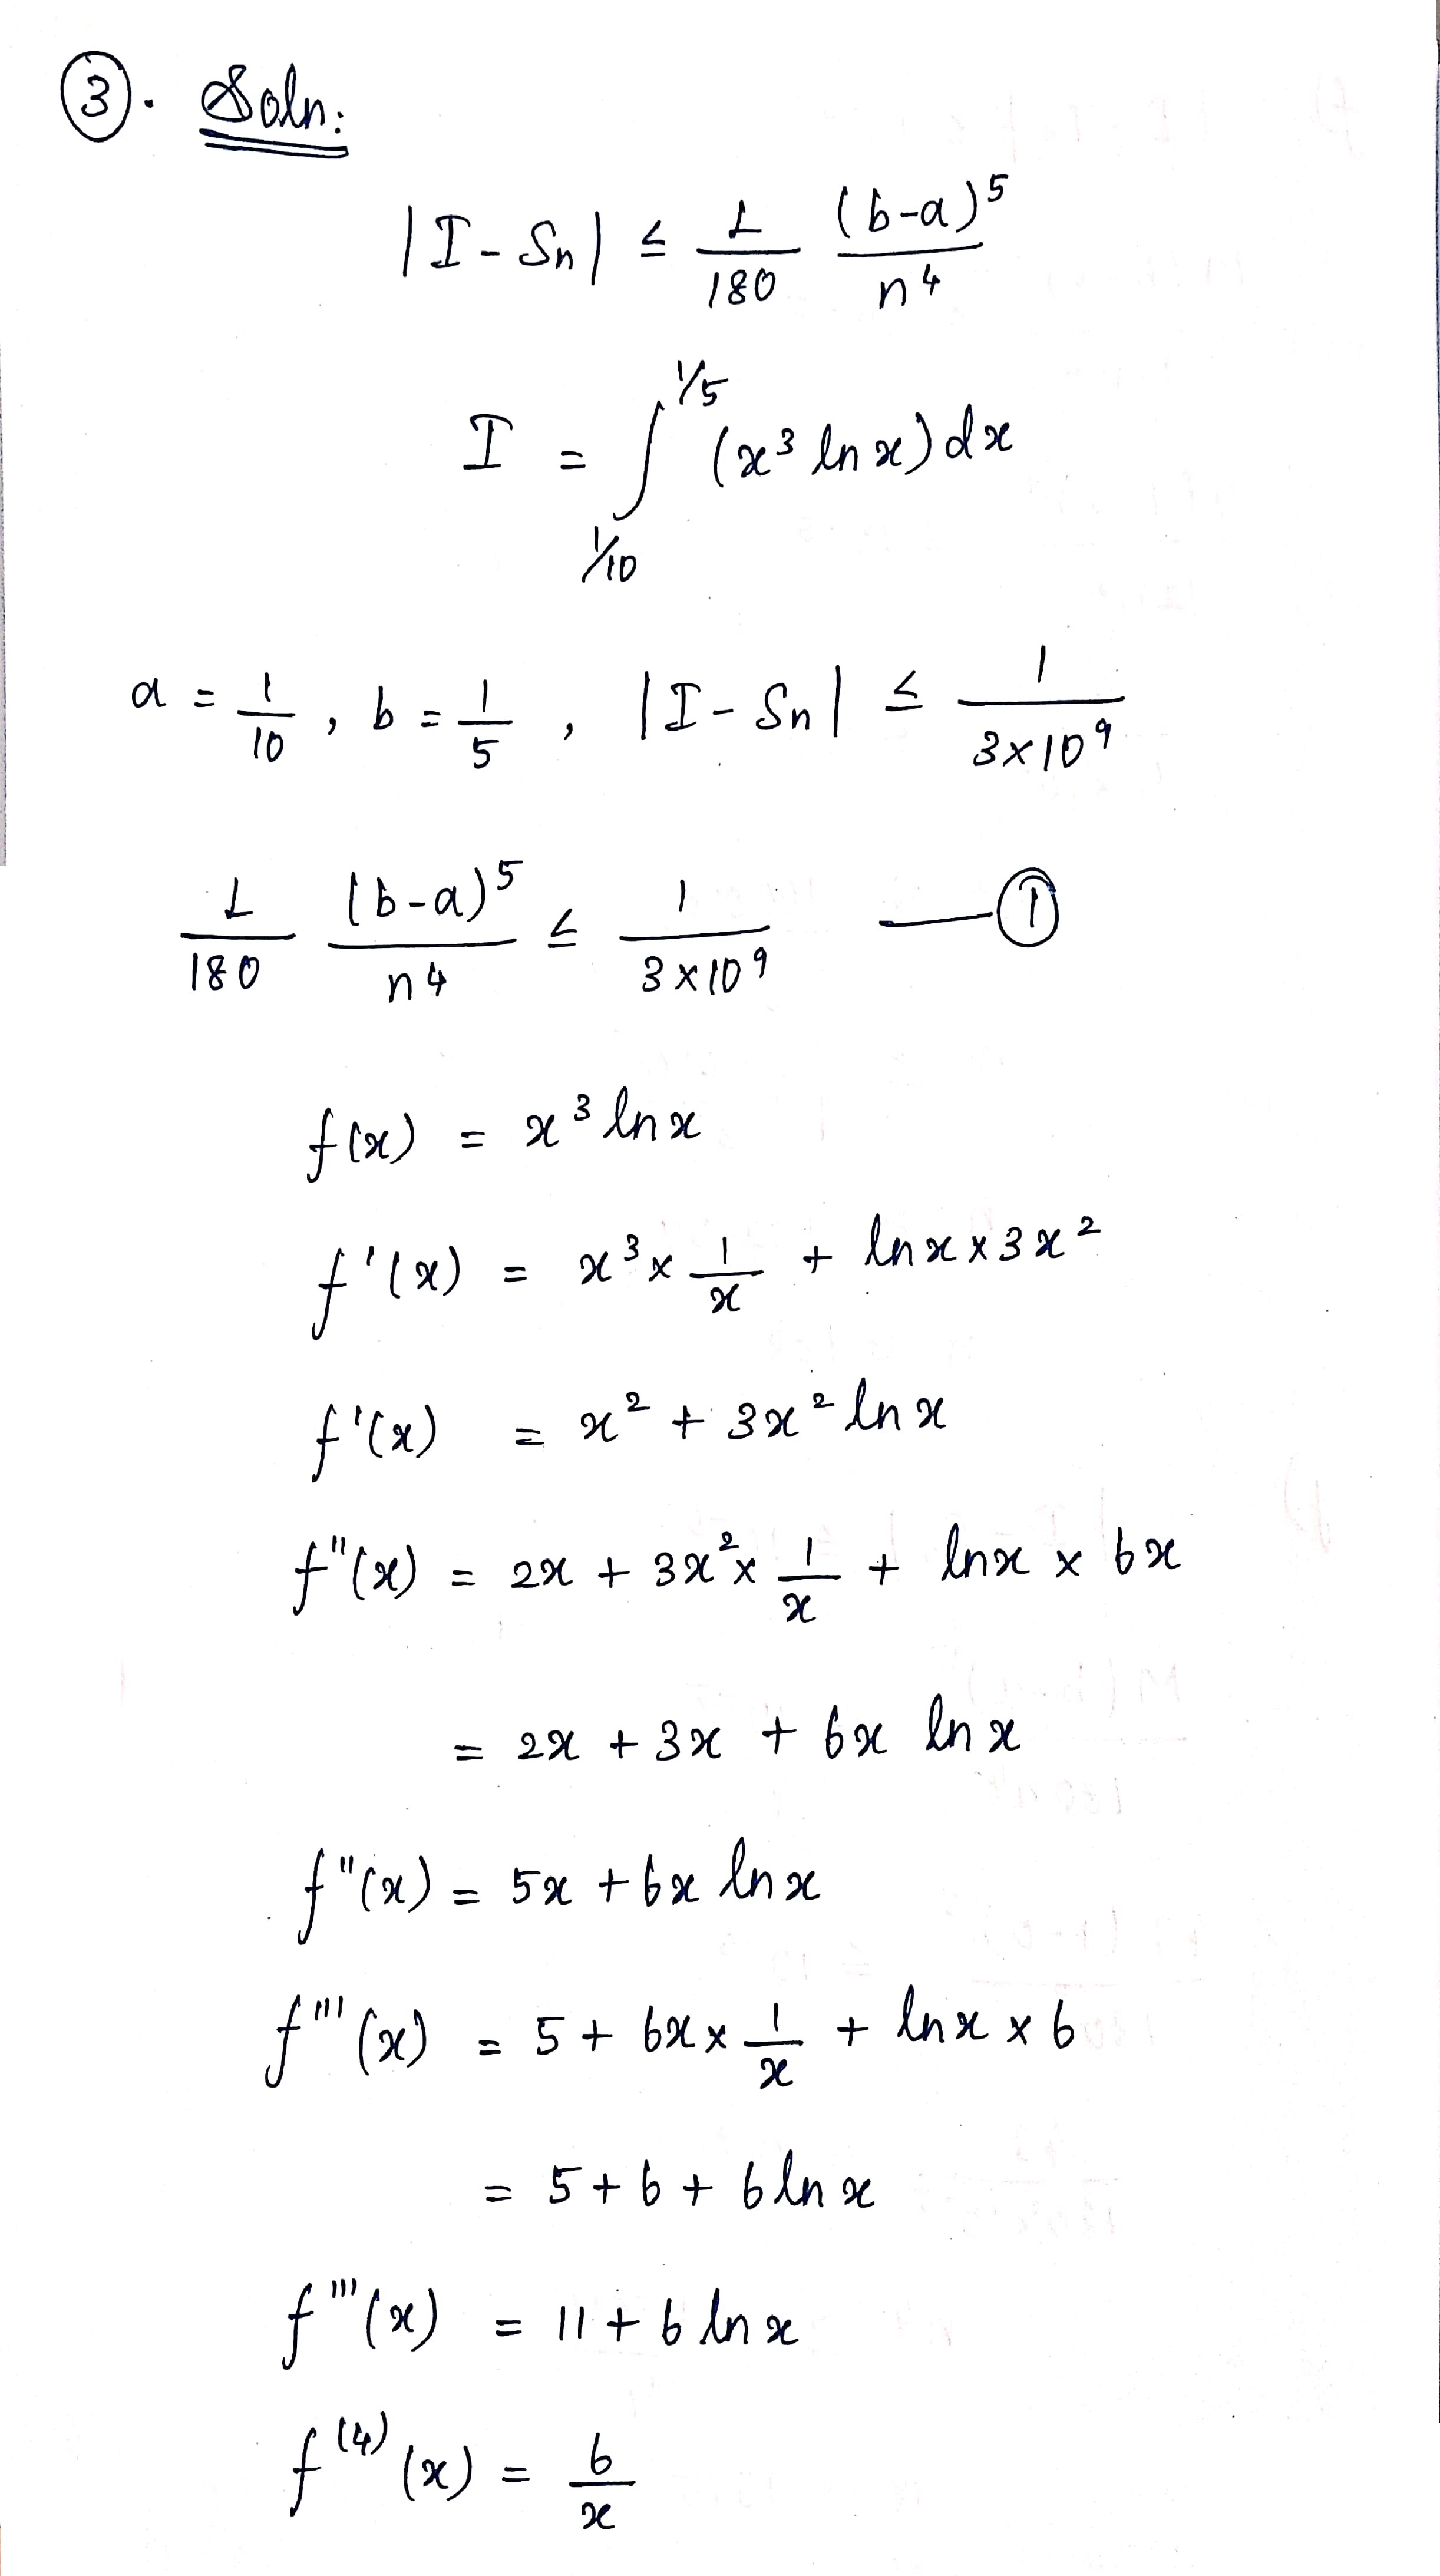 ③. Soln:
|I - Sn| ≤ L/180 (b-a)^5/n^4
I = ∫_{1/10}^{1/5} (x^3 ln x) dx
a = 1/10, b = 1/5, |I - Sn| ≤ 1/(3×10^9)
L/180 (b-a)^5/n^4 ≤ 1/(3×10^9) —①
f(x) = x^3 ln x
f'(x) = x^3 × 1/x + ln x × 3x^2
f'(x) = x^2 + 3x^2 ln x
f''(x) = 2x + 3x^2 × 1/x + ln x × 6x
= 2x + 3x + 6x ln x
f''(x) = 5x + 6x ln x
f'''(x) = 5 + 6x × 1/x + ln x × 6
= 5 + 6 + 6 ln x
f'''(x) = 11 + 6 ln x
f^(4)(x) = 6/x